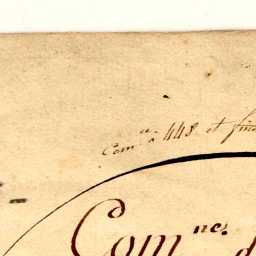 Com.ce a 448 et fin
Com.ne. d